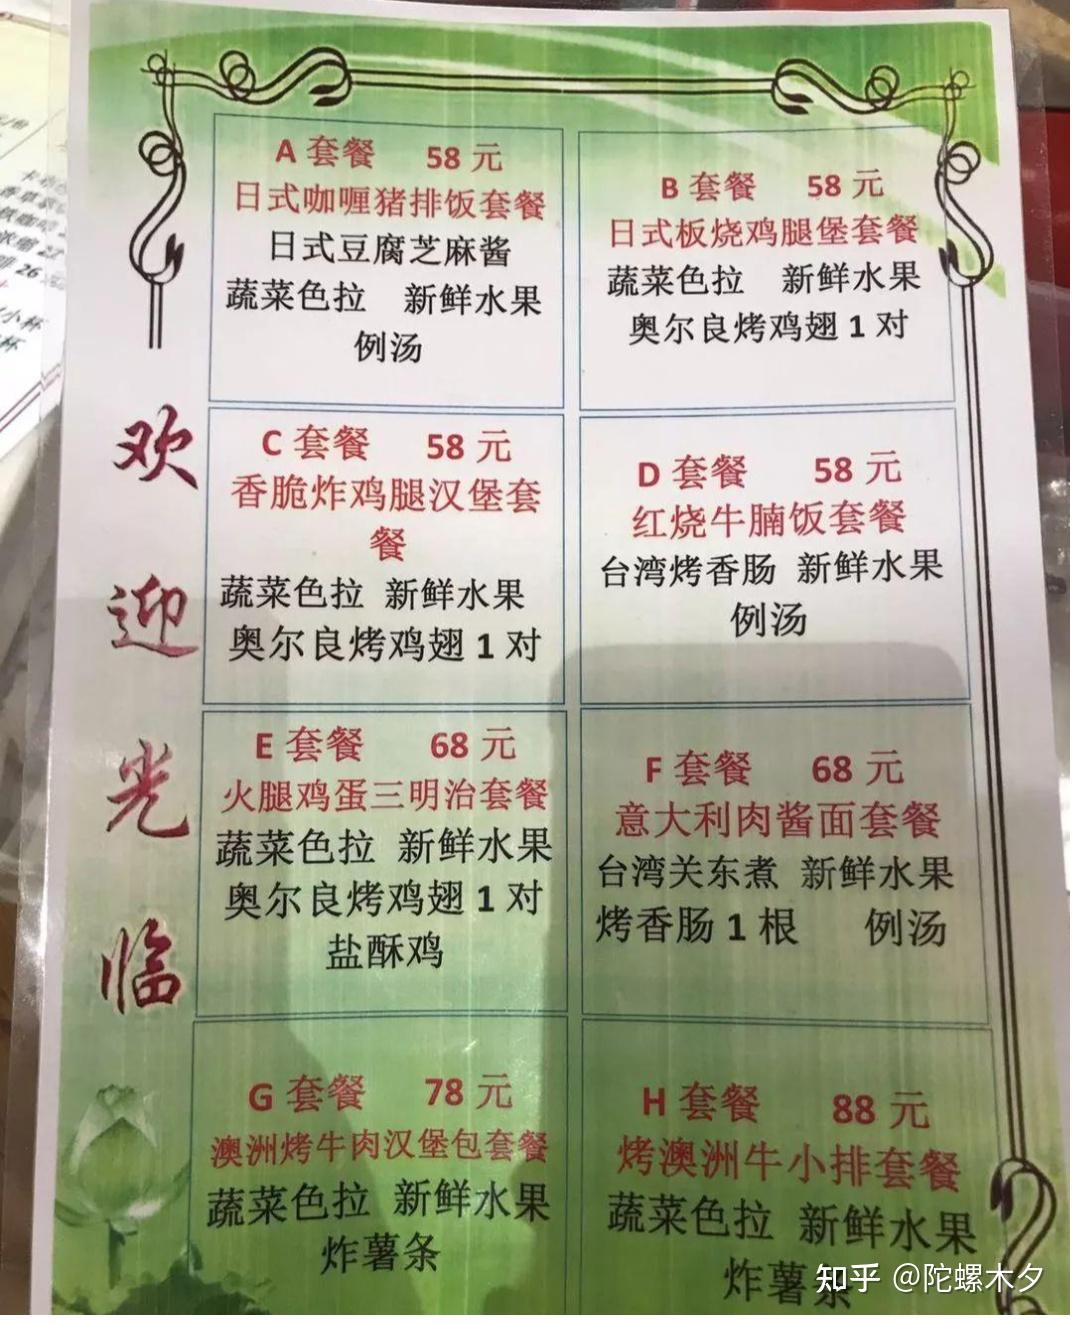 A 套餐 58 元
日式咖喱猪排饭套餐
日式豆腐芝麻酱
蔬菜色拉 新鲜水果
例汤
B 套餐 58 元
日式板烧鸡腿堡套餐
蔬菜色拉 新鲜水果
奥尔良烤鸡翅 1 对
C 套餐 58 元
香脆炸鸡腿汉堡套
餐
蔬菜色拉 新鲜水果
奥尔良烤鸡翅 1 对
D 套餐 58 元
红烧牛腩饭套餐
台湾烤香肠 新鲜水果
例汤
E 套餐 68 元
火腿鸡蛋三明治套餐
蔬菜色拉 新鲜水果
奥尔良烤鸡翅 1 对
盐酥鸡
F 套餐 68 元
意大利肉酱面套餐
台湾关东煮 新鲜水果
烤香肠 1 根 例汤
G 套餐 78 元
澳洲烤牛肉汉堡包套餐
蔬菜色拉 新鲜水果
炸薯条
H 套餐 88 元
烤澳洲牛小排套餐
蔬菜色拉 新鲜水果
炸薯条
欢迎光临
小杯
杯
知乎 @陀螺木夕